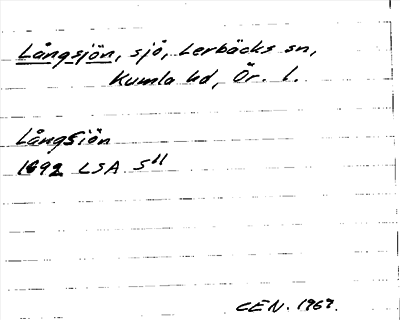 Långsjön, sjö, Lerbäcks sn,
Kumla hd, Ör. l.
Långsiön
1692 LSA S¹¹
CEN. 1967.